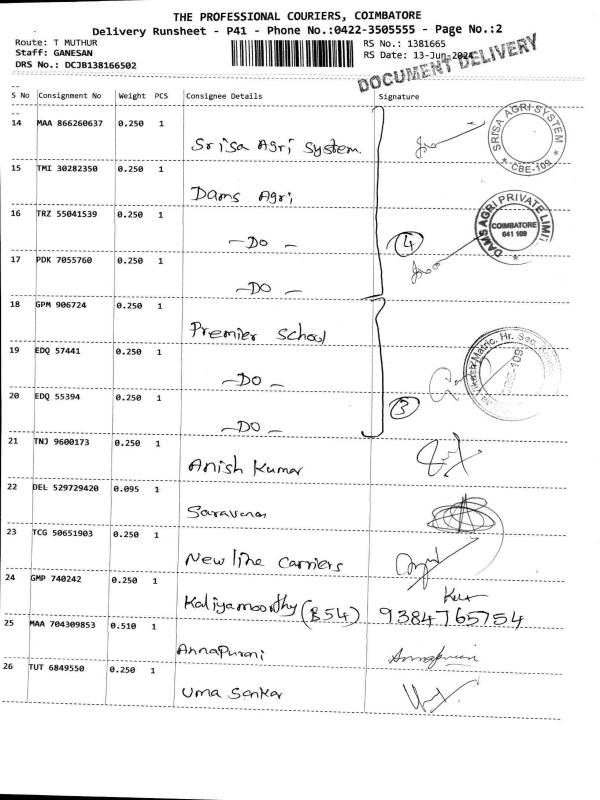 THE PROFESSIONAL COURIERS, COIMBATORE
Delivery Runsheet - P41 - Phone No.:0422-3505555 - Page No.:2
Route: T MUTHUR
RS No.: 1381665
Staff: GANESAN
RS Date: 13-Jun-2024
DRS No.: DCJB138166502
DOCUMENT DELIVERY
S No Consignment No Weight PCS Consignee Details Signature
14 MAA 866260637 0.250 1
Srisa Agri System
SRISA AGRI SYSTEM
* CBE-109 *
15 TMI 30282350 0.250 1
Dams Agri
16 TRZ 55041539 0.250 1
-DO-
4
DAMS AGRI PRIVATE LIMI
COIMBATORE
641 109
17 PDK 7055760 0.250 1
-DO-
18 GPM 906724 0.250 1
Premier School
Matric. Hr. Sec.
19 EDQ 57441 0.250 1
-DO-
20 EDQ 55394 0.250 1
3
-DO-
21 TNJ 9600173 0.250 1
Anish Kumar
22 DEL 529729420 0.095 1
Saravanan
23 TCG 50651903 0.250 1
New line Carriers
24 GMP 740242 0.250 1
Kaliyamoorthy (B54) 9384765754
25 MAA 704309853 0.510 1
Annapurani
26 TUT 6849550 0.250 1
Uma Sankar